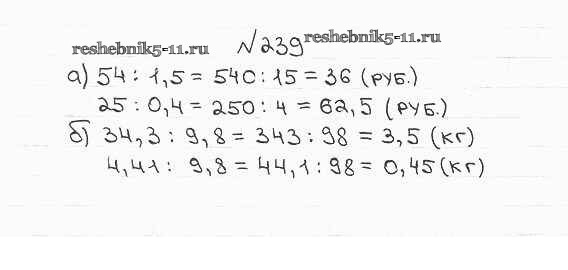 reshebnik5-11.ru №239 reshebnik5-11.ru
а) 54 : 1,5 = 540 : 15 = 36 (руб.)
25 : 0,4 = 250 : 4 = 62,5 (руб.)
б) 34,3 : 9,8 = 343 : 98 = 3,5 (кг)
4,41 : 9,8 = 44,1 : 98 = 0,45 (кг)